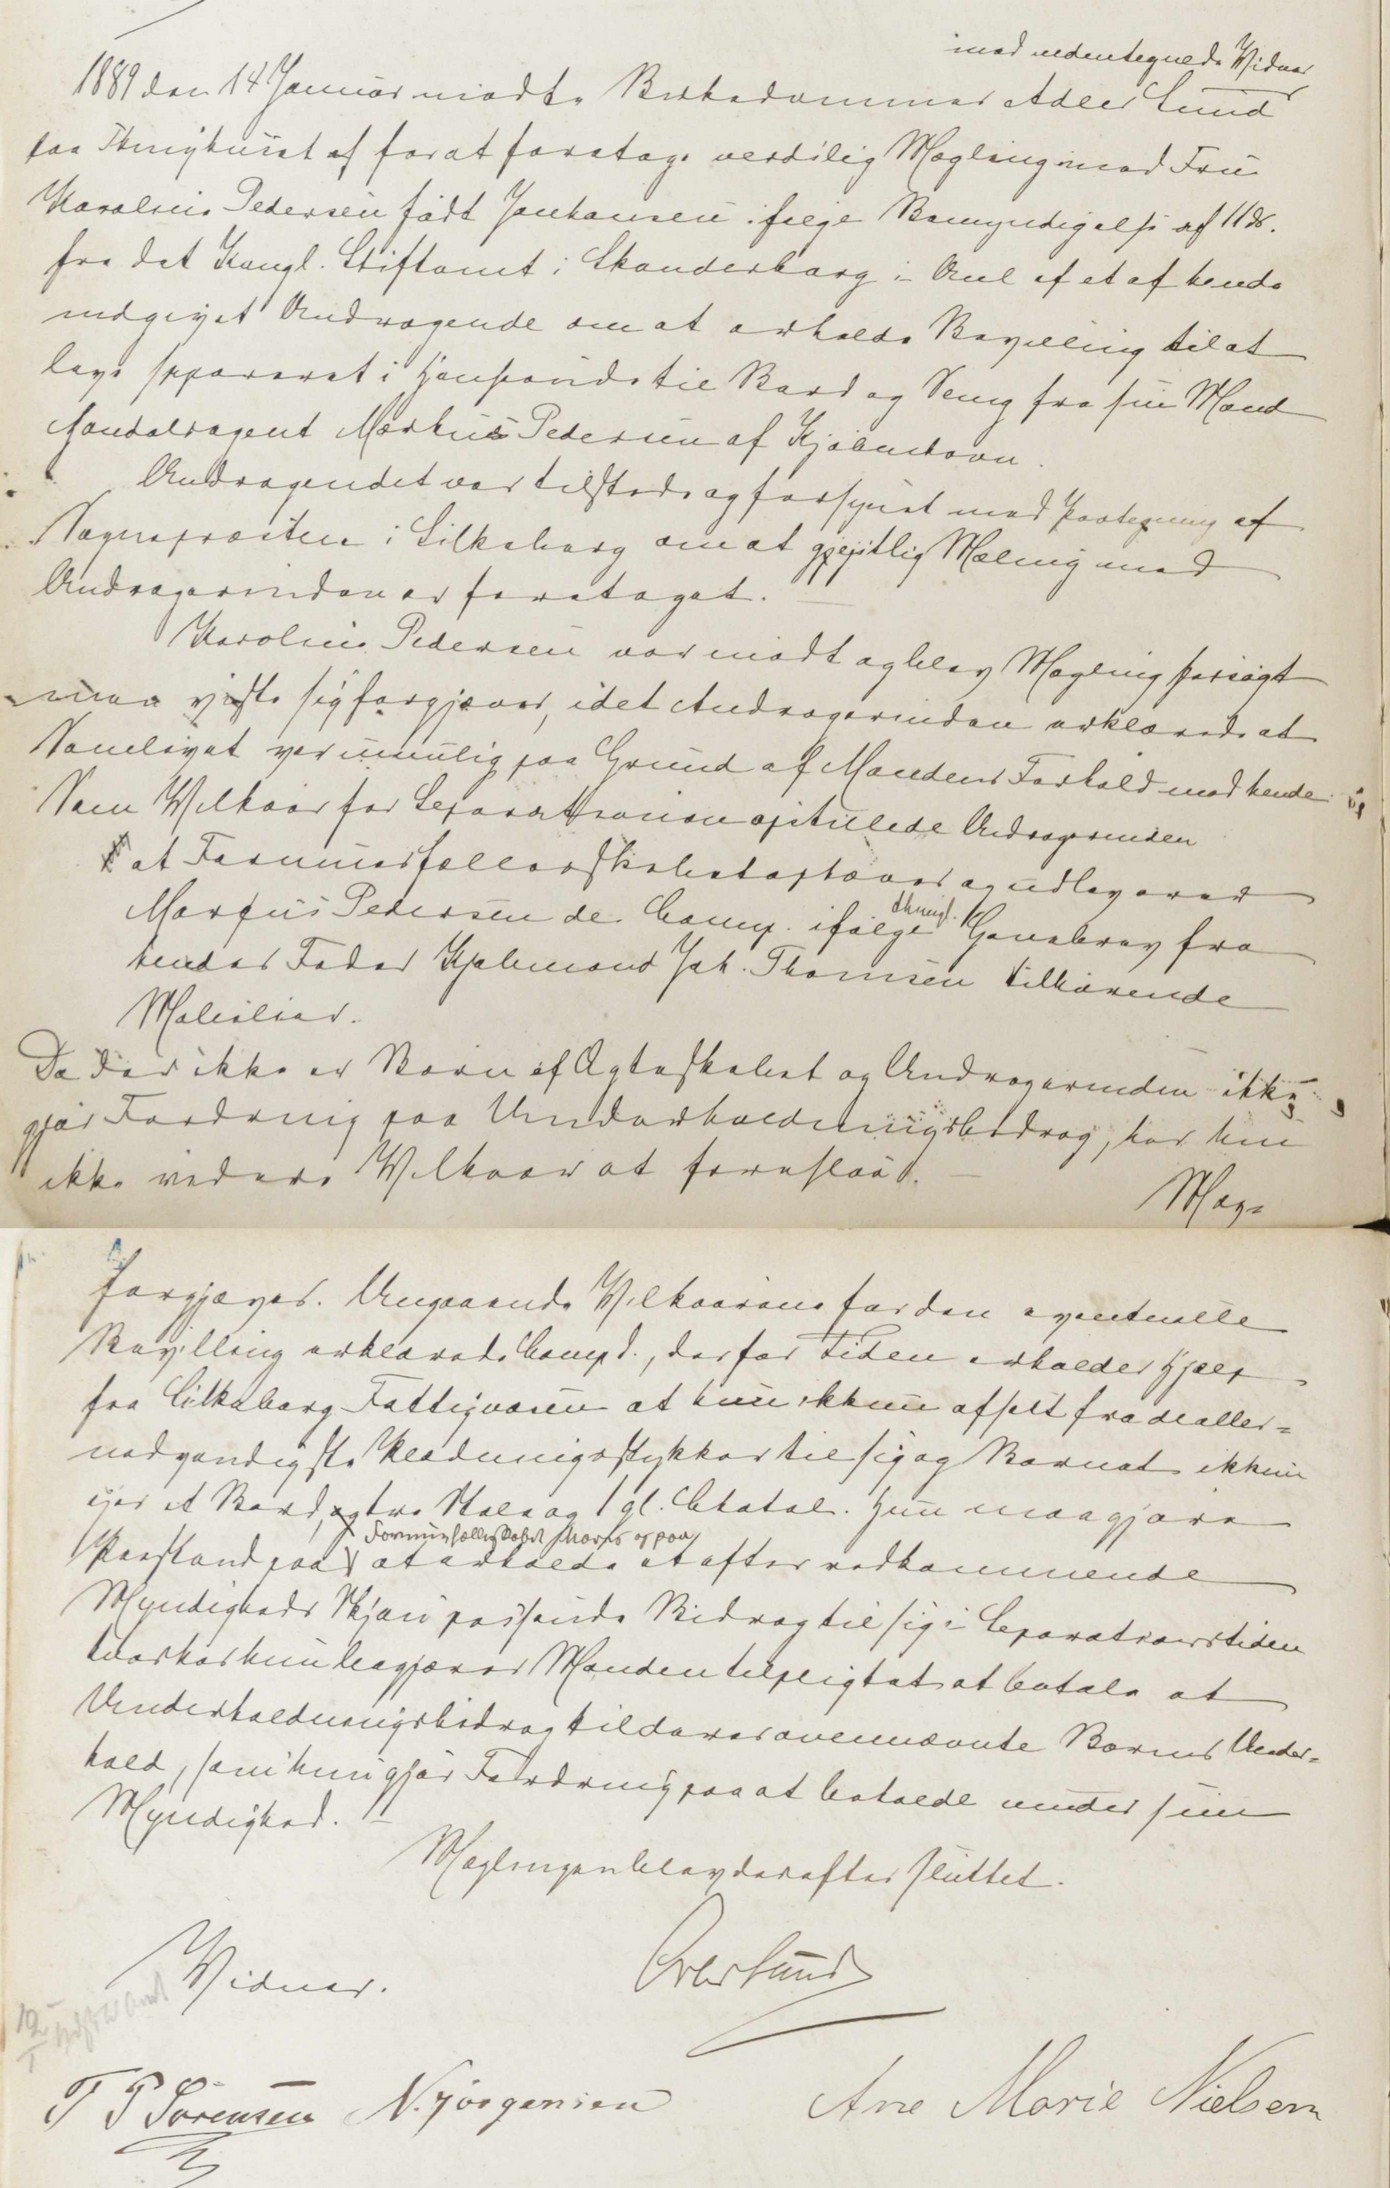 med undertegnede Vidner
1889 den 14 Januar mødte Birkedommer Adler Lund
paa Thinghuset af for at foretage verdslig Mægling med Fru
Karoline Pedersen født Johansen ifølge Bemyndigelse af 11 ds.
fra det Kongl. Stiftamt i Skanderborg i Anl af et af hende
indgivet Andragende om at erholde Bevilling til at
leve separeret i Henseende til Bord og Seng fra sin Mand
Handelsagent Markus Pedersen af Kjøbenhavn.
Andragendet var tilstede og forsynet med Paategning af
Sognepræsten i Silkeborg om at gejstlig Mæling med
Andragerinden er foretaget.
Karoline Pedersen var mødt og blev Mægling forsøgt
men viste sig forgjæves, idet Andragerinden erklærede at
Samlivet var umulig paa Grund af Mandens Forhold mod hende
Som Vilkaar for Separationen opstillede Andragerinden
at Formuesfællesskabet ophæves og udleverer
Markus Pedersen de Comp. ifølge thingl. Gavebrev fra
hendes Fader Kjøbmand Joh. Thomsen tilhørende
Mobilier.
Da der ikke er Børn af Ægteskabet og Andragerinden ikke
gjør Fordring paa Underholdningsbidrag, har hun
ikke videre Vilkaar at foreslaa.
Mæg=
forgjæves. Angaaende Vilkaarene for den eventuelle
Bevilling erklærede Compd., der for Tiden erholder Hjælp
fra Silkeborg Fattigvæsen at hun ikkun afset fra de aller=
nødvendigste Klædningsstykker til sig og Barnet ikkun
ejer et Bord, og tre Stole og 1 gl. Chatol. Hun maa gjøre
Formuesfællesskabet hæves og paa
Paastand paa at erholde et efter vedkommende
Myndigheds Skjøn passende Bidrag til sig i Separationstiden
hvorhos hun begjærer Manden tilpligtet at betale et
Underholdningsbidrag til deres ovennævnte Barns Under=
hold, som hun gjør Fordring paa at beholde under sin
Myndighed.
Mæglingen blev derefter sluttet.
Vidner. Adler Lund
T P Sørensen N. Jørgensen Ane Marie Nielsen